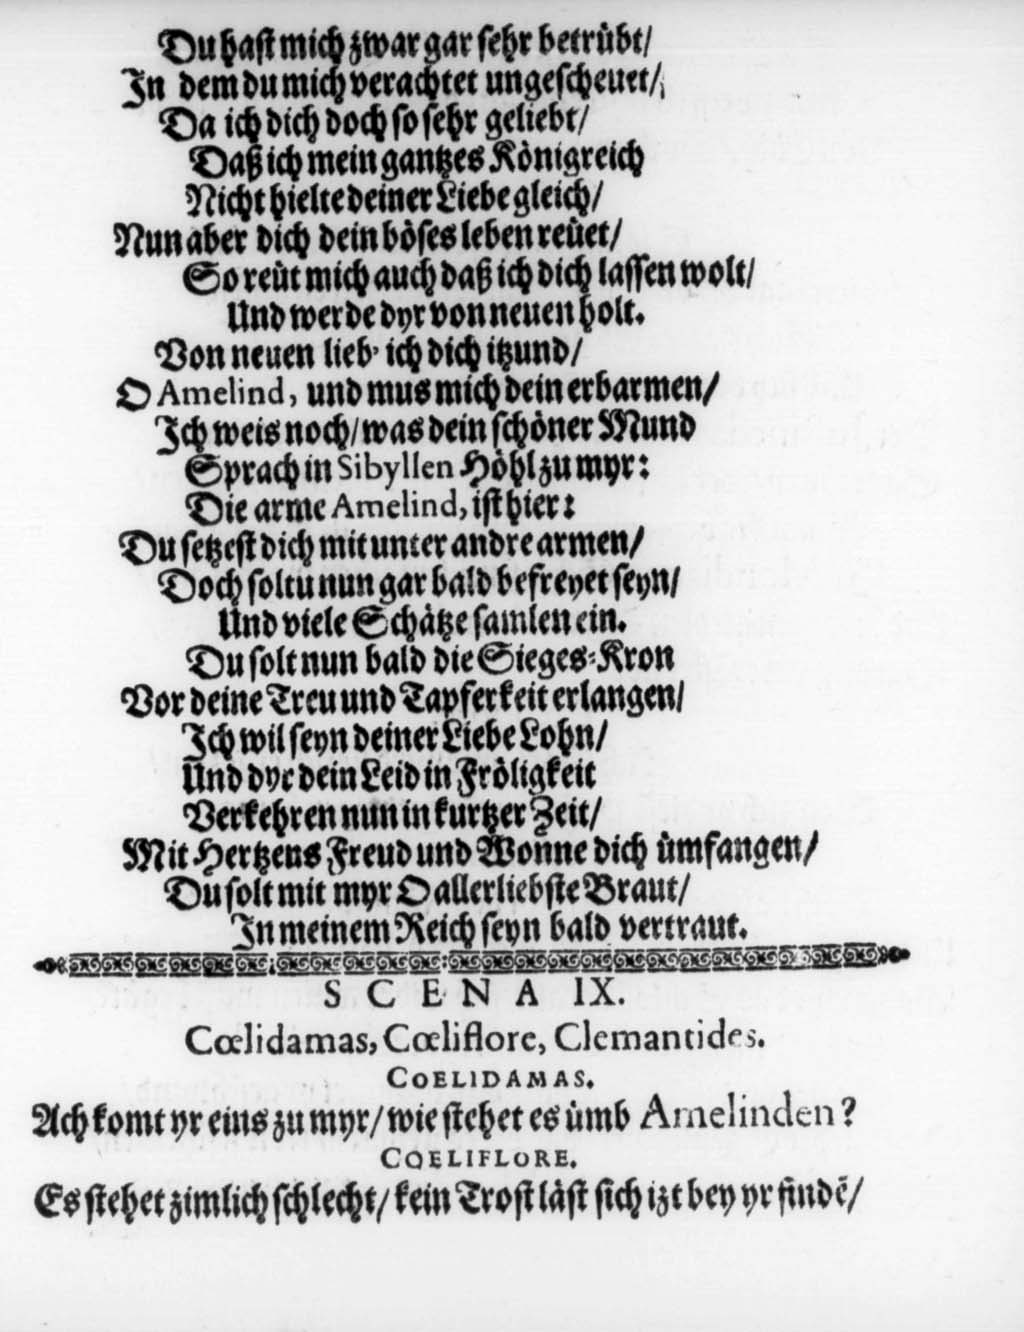 Du hast mich zwar gar sehr betrübt/
In dem du mich verachtet ungescheuet/
Da ich dich doch so sehr geliebt/
Daß ich mein gantzes Königreich
Nicht hielte deiner Liebe gleich/
Nun aber dich dein böses leben reüet/
So reüt mich auch daß ich dich lassen wolt/
Und werde dyr von neuen holt.
Von neuen lieb' ich dich itzund/
O Amelind, und mus mich dein erbarmen/
Ich weis noch/ was dein schöner Mund
Sprach in Sibyllen Höhl zu myr:
Die arme Amelind, ist hier:
Du setzest dich mit unter andre armen/
Doch soltu nun gar bald befreyet seyn/
Und viele Schätze samlen ein.
Du solt nun bald die Sieges-Kron
Vor deine Treu und Tapferkeit erlangen/
Ich wil seyn deiner Liebe Lohn/
Und dyr dein Leid in Fröligkeit
Verkehren nun in kurtzer Zeit/
Mit Hertzens Freud und Wonne dich ümfangen/
Du solt mit myr O allerliebste Braut/
In meinem Reich seyn bald vertraut.
SCENA IX.
Cœlidamas, Cœliflore, Clemantides.
COELIDAMAS.
Ach komt yr eins zu myr/ wie stehet es ümb Amelinden?
COELIFLORE.
Es stehet zimlich schlecht/ kein Trost läst sich izt bey yr findẽ/